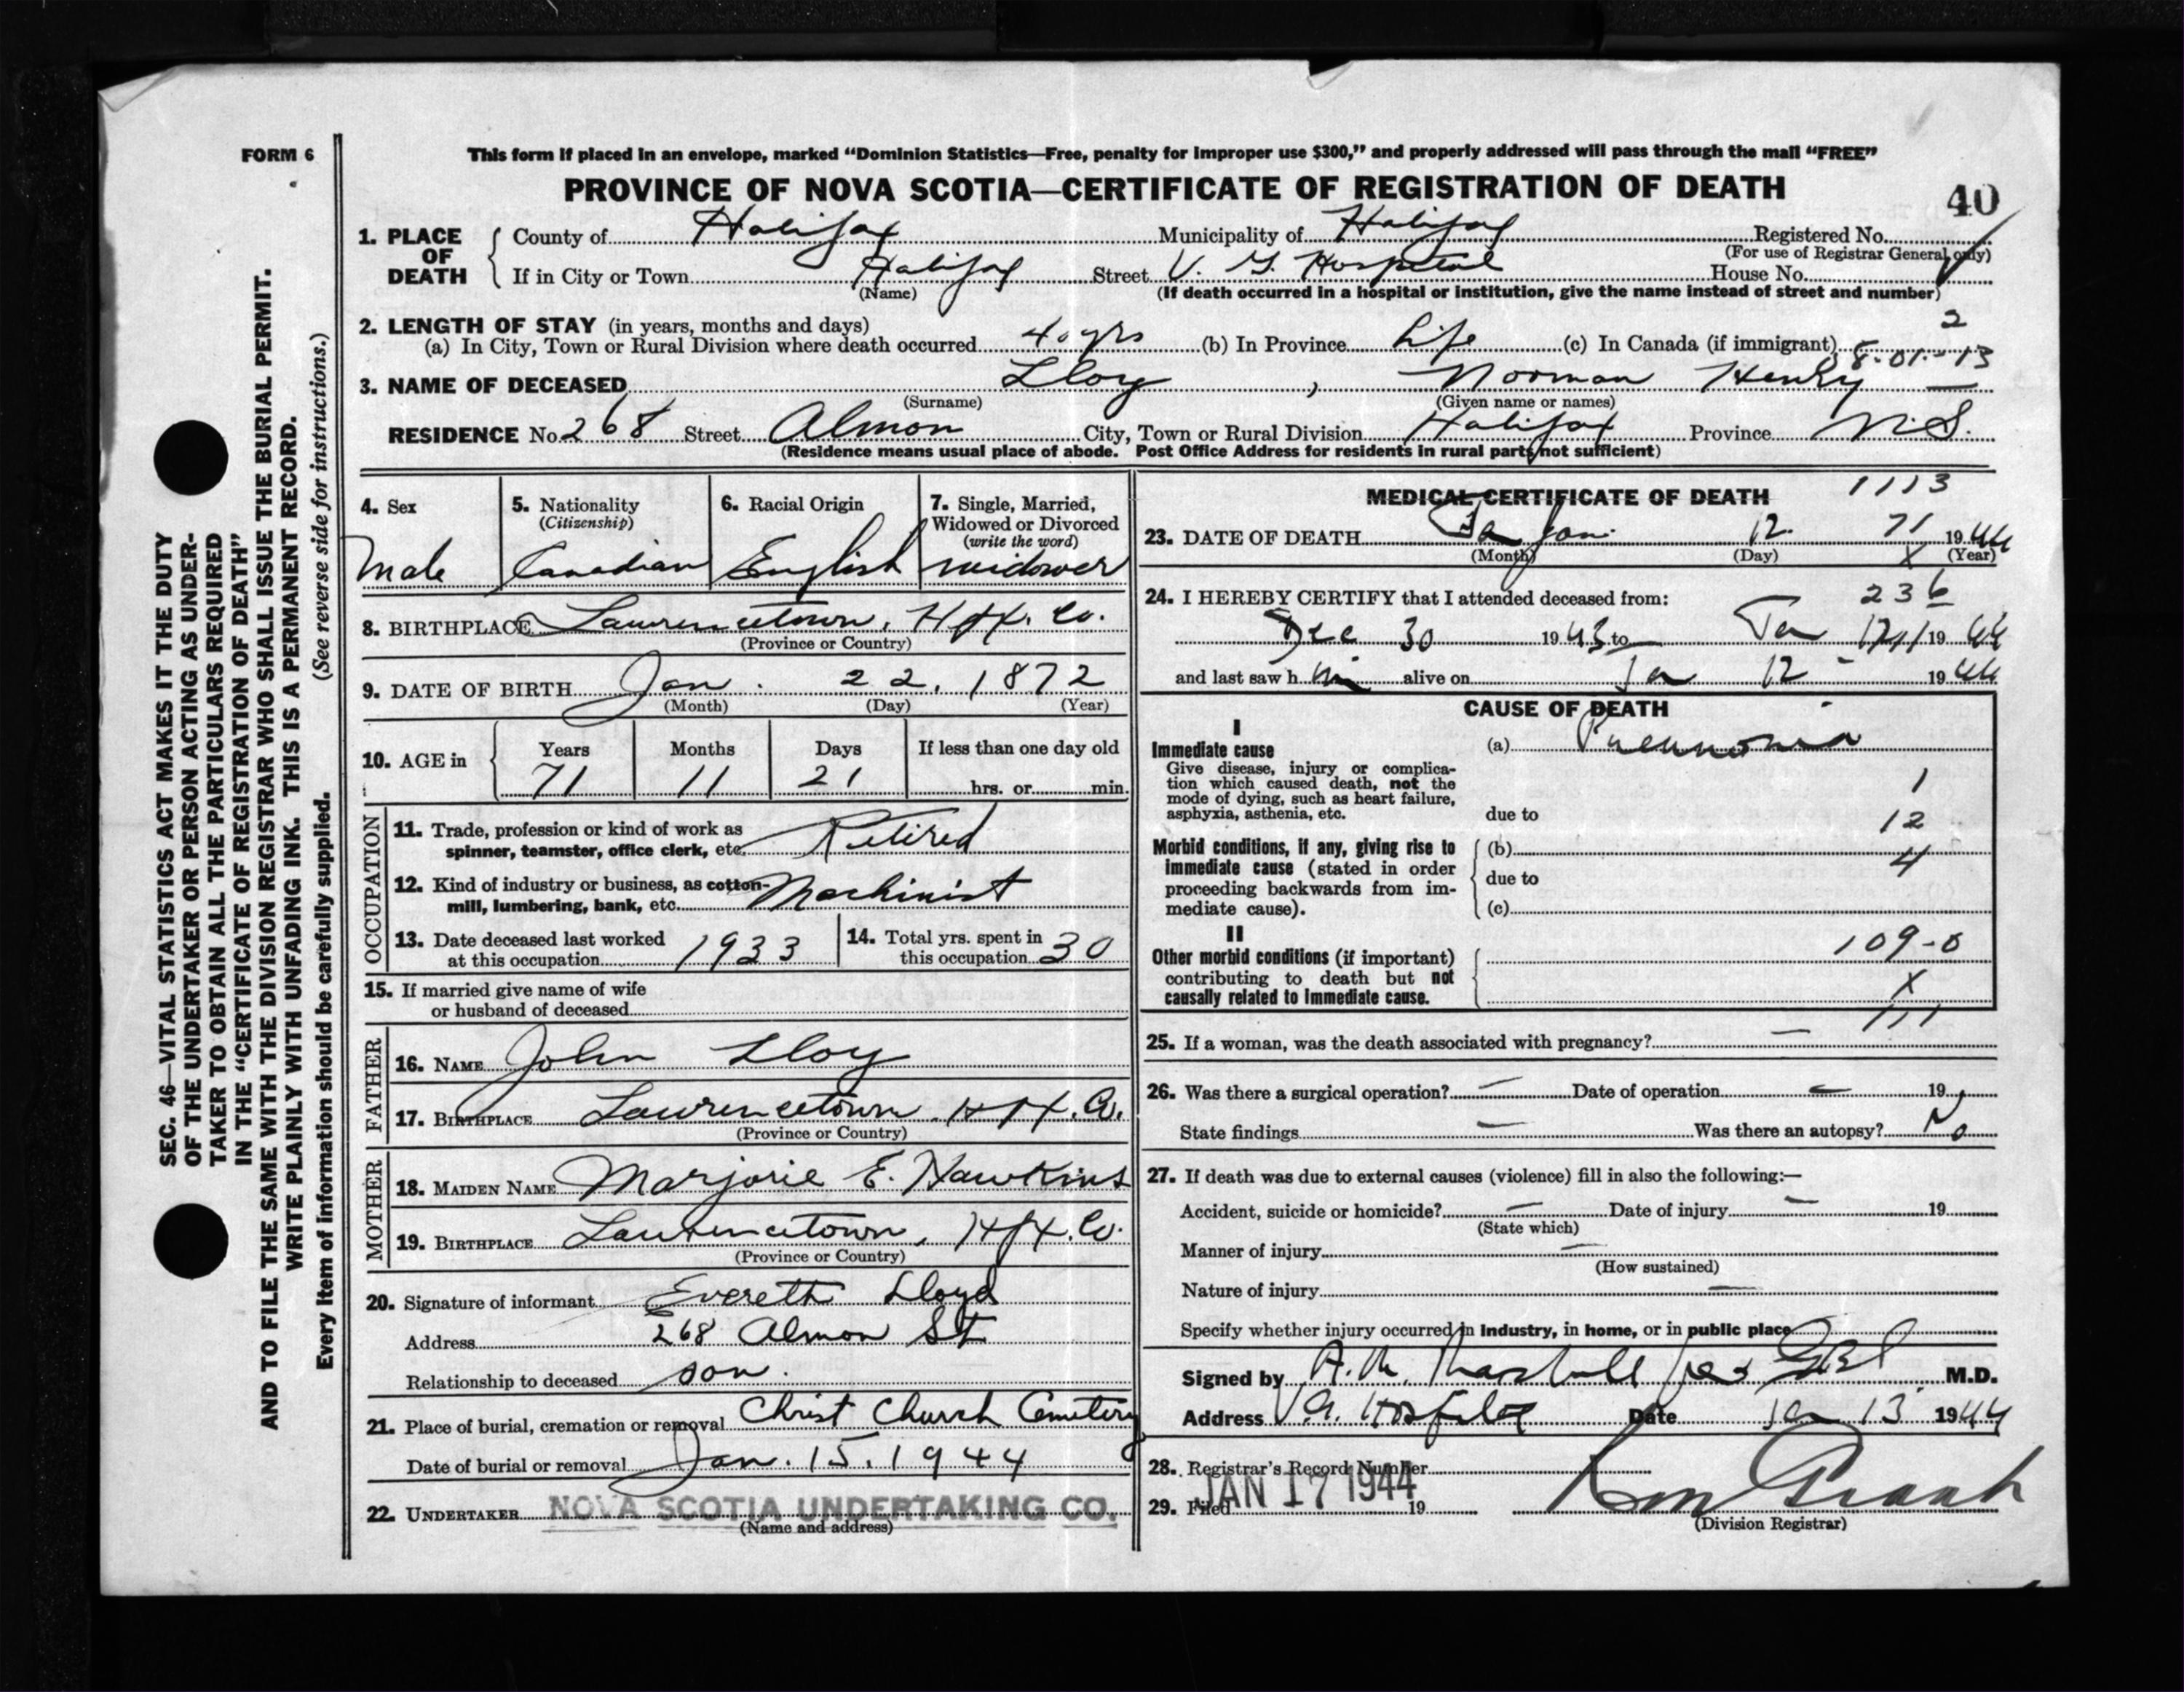 FORM 6
This form if placed in an envelope, marked “Dominion Statistics—Free, penalty for improper use $300,” and properly addressed will pass through the mail “FREE”
PROVINCE OF NOVA SCOTIA—CERTIFICATE OF REGISTRATION OF DEATH
40
1. PLACE OF DEATH
County of Halifax Municipality of Halifax Registered No.
(For use of Registrar General only)
If in City or Town Halifax Street V. G. Hospital House No.
(Name) (If death occurred in a hospital or institution, give the name instead of street and number)
2. LENGTH OF STAY (in years, months and days)
2
(a) In City, Town or Rural Division where death occurred 40 yrs (b) In Province Life (c) In Canada (if immigrant)
8-01-13
3. NAME OF DECEASED Lloy , Norman Henry
(Surname) (Given name or names)
RESIDENCE No. 268 Street Almon City, Town or Rural Division Halifax Province N.S.
(Residence means usual place of abode. Post Office Address for residents in rural parts not sufficient)
4. Sex
Male
5. Nationality
(Citizenship)
Canadian
6. Racial Origin
English
7. Single, Married,
Widowed or Divorced
(write the word)
widower
8. BIRTHPLACE Lawrencetown, Hfx. Co.
(Province or Country)
9. DATE OF BIRTH Jan. 22, 1872
(Month) (Day) (Year)
10. AGE in
Years Months Days If less than one day old
71 11 21 hrs. or min.
OCCUPATION
11. Trade, profession or kind of work as
spinner, teamster, office clerk, etc. Retired
12. Kind of industry or business, as cotton-
mill, lumbering, bank, etc. Machinist
13. Date deceased last worked
at this occupation 1933
14. Total yrs. spent in
this occupation 30
15. If married give name of wife
or husband of deceased
FATHER
16. NAME John Lloy
17. BIRTHPLACE Lawrencetown, Hfx. Co.
(Province or Country)
MOTHER
18. MAIDEN NAME Marjorie E. Hawkins
19. BIRTHPLACE Lawrencetown, Hfx. Co.
(Province or Country)
20. Signature of informant Evereth Lloyd
Address 268 Almon St
Relationship to deceased son.
21. Place of burial, cremation or removal Christ Church Cemetery
Date of burial or removal Jan. 15. 1944
22. UNDERTAKER NOVA SCOTIA UNDERTAKING CO.
(Name and address)
MEDICAL CERTIFICATE OF DEATH 1113
23. DATE OF DEATH Jan. 12. 71 1944
(Month) (Day) X (Year)
24. I HEREBY CERTIFY that I attended deceased from: 236
Dec 30 1943 to Ja 12 1944
and last saw him alive on Ja 12 1944
CAUSE OF DEATH
I
Immediate cause
Give disease, injury or complica-
tion which caused death, not the
mode of dying, such as heart failure,
asphyxia, asthenia, etc.
(a) Pneumonia
1
due to
12
Morbid conditions, if any, giving rise to
immediate cause (stated in order
proceeding backwards from im-
mediate cause).
(b)
4
due to
(c)
II
Other morbid conditions (if important)
contributing to death but not
causally related to immediate cause.
109-0
X
111
25. If a woman, was the death associated with pregnancy? —
26. Was there a surgical operation? — Date of operation — 19
State findings — Was there an autopsy? No
27. If death was due to external causes (violence) fill in also the following:—
Accident, suicide or homicide? — Date of injury — 19
(State which)
Manner of injury —
(How sustained)
Nature of injury —
Specify whether injury occurred in industry, in home, or in public place
Signed by A. M. Marshall M.D.
Address V.G. Hospital Date Jan 13 1944
28. Registrar's Record Number
29. Filed JAN 17 1944 19
(Division Registrar)
SEC. 46—VITAL STATISTICS ACT MAKES IT THE DUTY
OF THE UNDERTAKER OR PERSON ACTING AS UNDER-
TAKER TO OBTAIN ALL THE PARTICULARS REQUIRED
IN THE “CERTIFICATE OF REGISTRATION OF DEATH”
AND TO FILE THE SAME WITH THE DIVISION REGISTRAR WHO SHALL ISSUE THE BURIAL PERMIT.
WRITE PLAINLY WITH UNFADING INK. THIS IS A PERMANENT RECORD.
Every item of information should be carefully supplied. (See reverse side for instructions.)